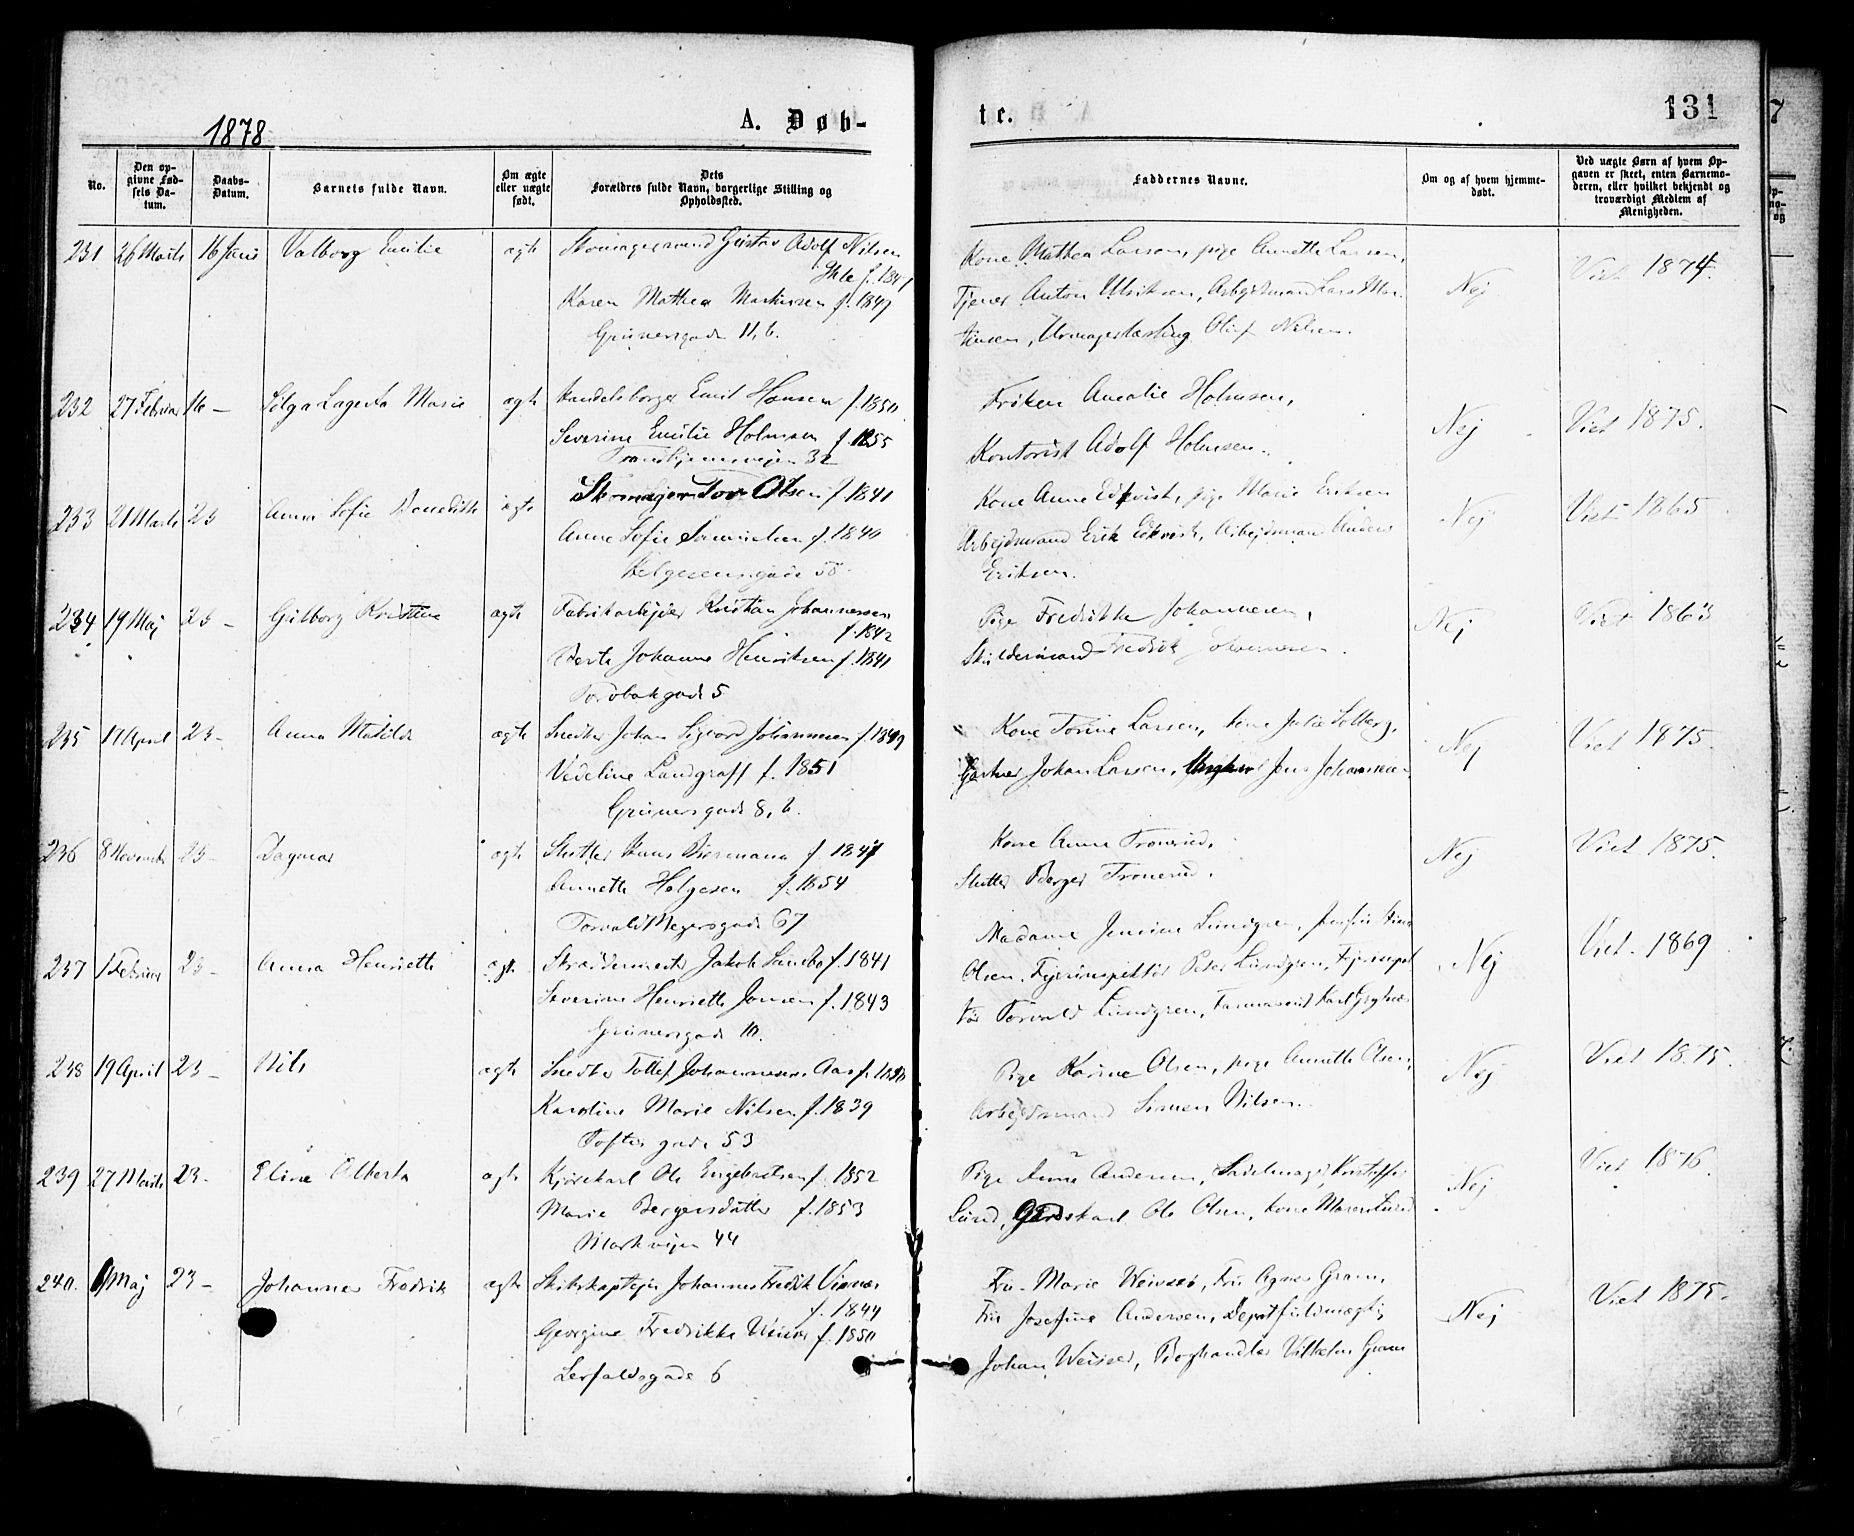 1878
A. Døb-
te.
131
No.
Den op-
givne Fød-
sels Da-
tum.
Daabs-
Datum.
Barnets fulde Navn.
Om ægte
eller uægte
født.
Dets
Forældres fulde Navn, borgerlige Stilling og
Opholdssted.
Faddernes Navne.
Om og af hvem hjemme-
døbt.
Ved uægte Børn af hvem Op-
gaven er skeet, enten Barnemo-
deren, eller hvilket bekjendt og
troværdigt Medlem af
Menigheden.
231 26 Marts 16 Juni Valborg Emilie ægte Gustav Adolf Nilsen
f. 1847
Karen Mathea Martinsen f. 1847
Grünersgade 11, b.
Kone Mathea Larsen, pige Annette Larsen,
Tjener Anton Ulriksen, Arbejdsmand Lars Mar-
tinsen, Urmagerlærling Oluf Nilsen.
Nej
Viet 1874.
232 27 Februar 16 – Solga Lagerta Marie ægte Handelsborger Emil Hansen f. 1850
Severine Emilie Holmsen f. 1855
Trondhjemsvejen 32
Frøken Amalie Holmsen,
Kontorist Adolf Holmsen.
Nej
Viet 1875.
233 21 Marts 23 Anna Sofie Benedikte ægte Skomager Tov Olsen f. 1841
Anne Sofie Samuelsen f. 1840
Helgesensgade 58
Kone Anne Edkvist, pige Marie Eriksen
Arbejdsmand Erik Edkvist, Arbejdsmand Anders
Eriksen.
Nej
Viet 1865
234 19 Maj 23 – Gulborg Kristine ægte Fabrikarbejder Kristian Johannessen
f. 1842
Berte Johanne Henriksen f. 1841
gade 5
Pige Fredrikke Johannesen,
Fredrik Johannesen.
Nej
Viet 1863
235 17 April 23 – Anna Matilde ægte Snedker Johan Sigvard Johannesen f. 1849
Vedeline Landgraff f. 1851
Grünersgade 8, b.
Kone Torine Larsen, kone Julie Solberg,
Gartner Johan Larsen, Jens Johannesen
Nej
Viet 1875.
236 8 November 23 – Dagmar ægte Slutter Hans f. 1847
Annette Helgesen f. 1854
Torvald Meyersgade 67
Kone Anne Tronerud,
Slutter Berger Tronerud.
Nej
Viet 1875.
237 1 Februar 23 – Anna Henriette ægte Skræddermester Jakob Sandbo f. 1841
Severine Henriette Jonsen f. 1843
Grünersgade 10.
Madame Jensine Lundgren, jomfru
Olsen, Fyrinspektør Peter Lundgren, Fyrinspek
tør Torvald Lundgren, Farmaceut Karl
Nej
Viet 1869
238 19 April 23 – Nils ægte Snedker Tollef Johannesen Aas f.
Karoline Marie Nilsen f. 1839
Toftes gade 53
Pige Karine Olsen, pige Annette Olsen,
Arbejdsmand Simen Nilsen.
Nej
Viet 1875.
239 27 Marts 23 – Eline Alberta ægte Kjørekarl Ole Engebretsen f. 1852
Marie Bergersdatter f. 1853
Markvejen 44
Pige Anne Andersen, Sadelmager Kristoffer
Lund, Gårdskarl Ole Olsen, kone Maren Lund
Nej
Viet 1876.
240. 6 Maj 23 – Johannes Fredrik ægte Skibskaptejn Johannes Fredrik Vianer
f. 1844
Georgine Fredrikke Weisser f. 1850
Lerfaldsgade 6
Fru Marie Weisser, Fru Agnes Gram,
Fru Josefine Andersen,
Johan Weisser, Boghandler Vilhelm Gram
Nej
Viet 1875.